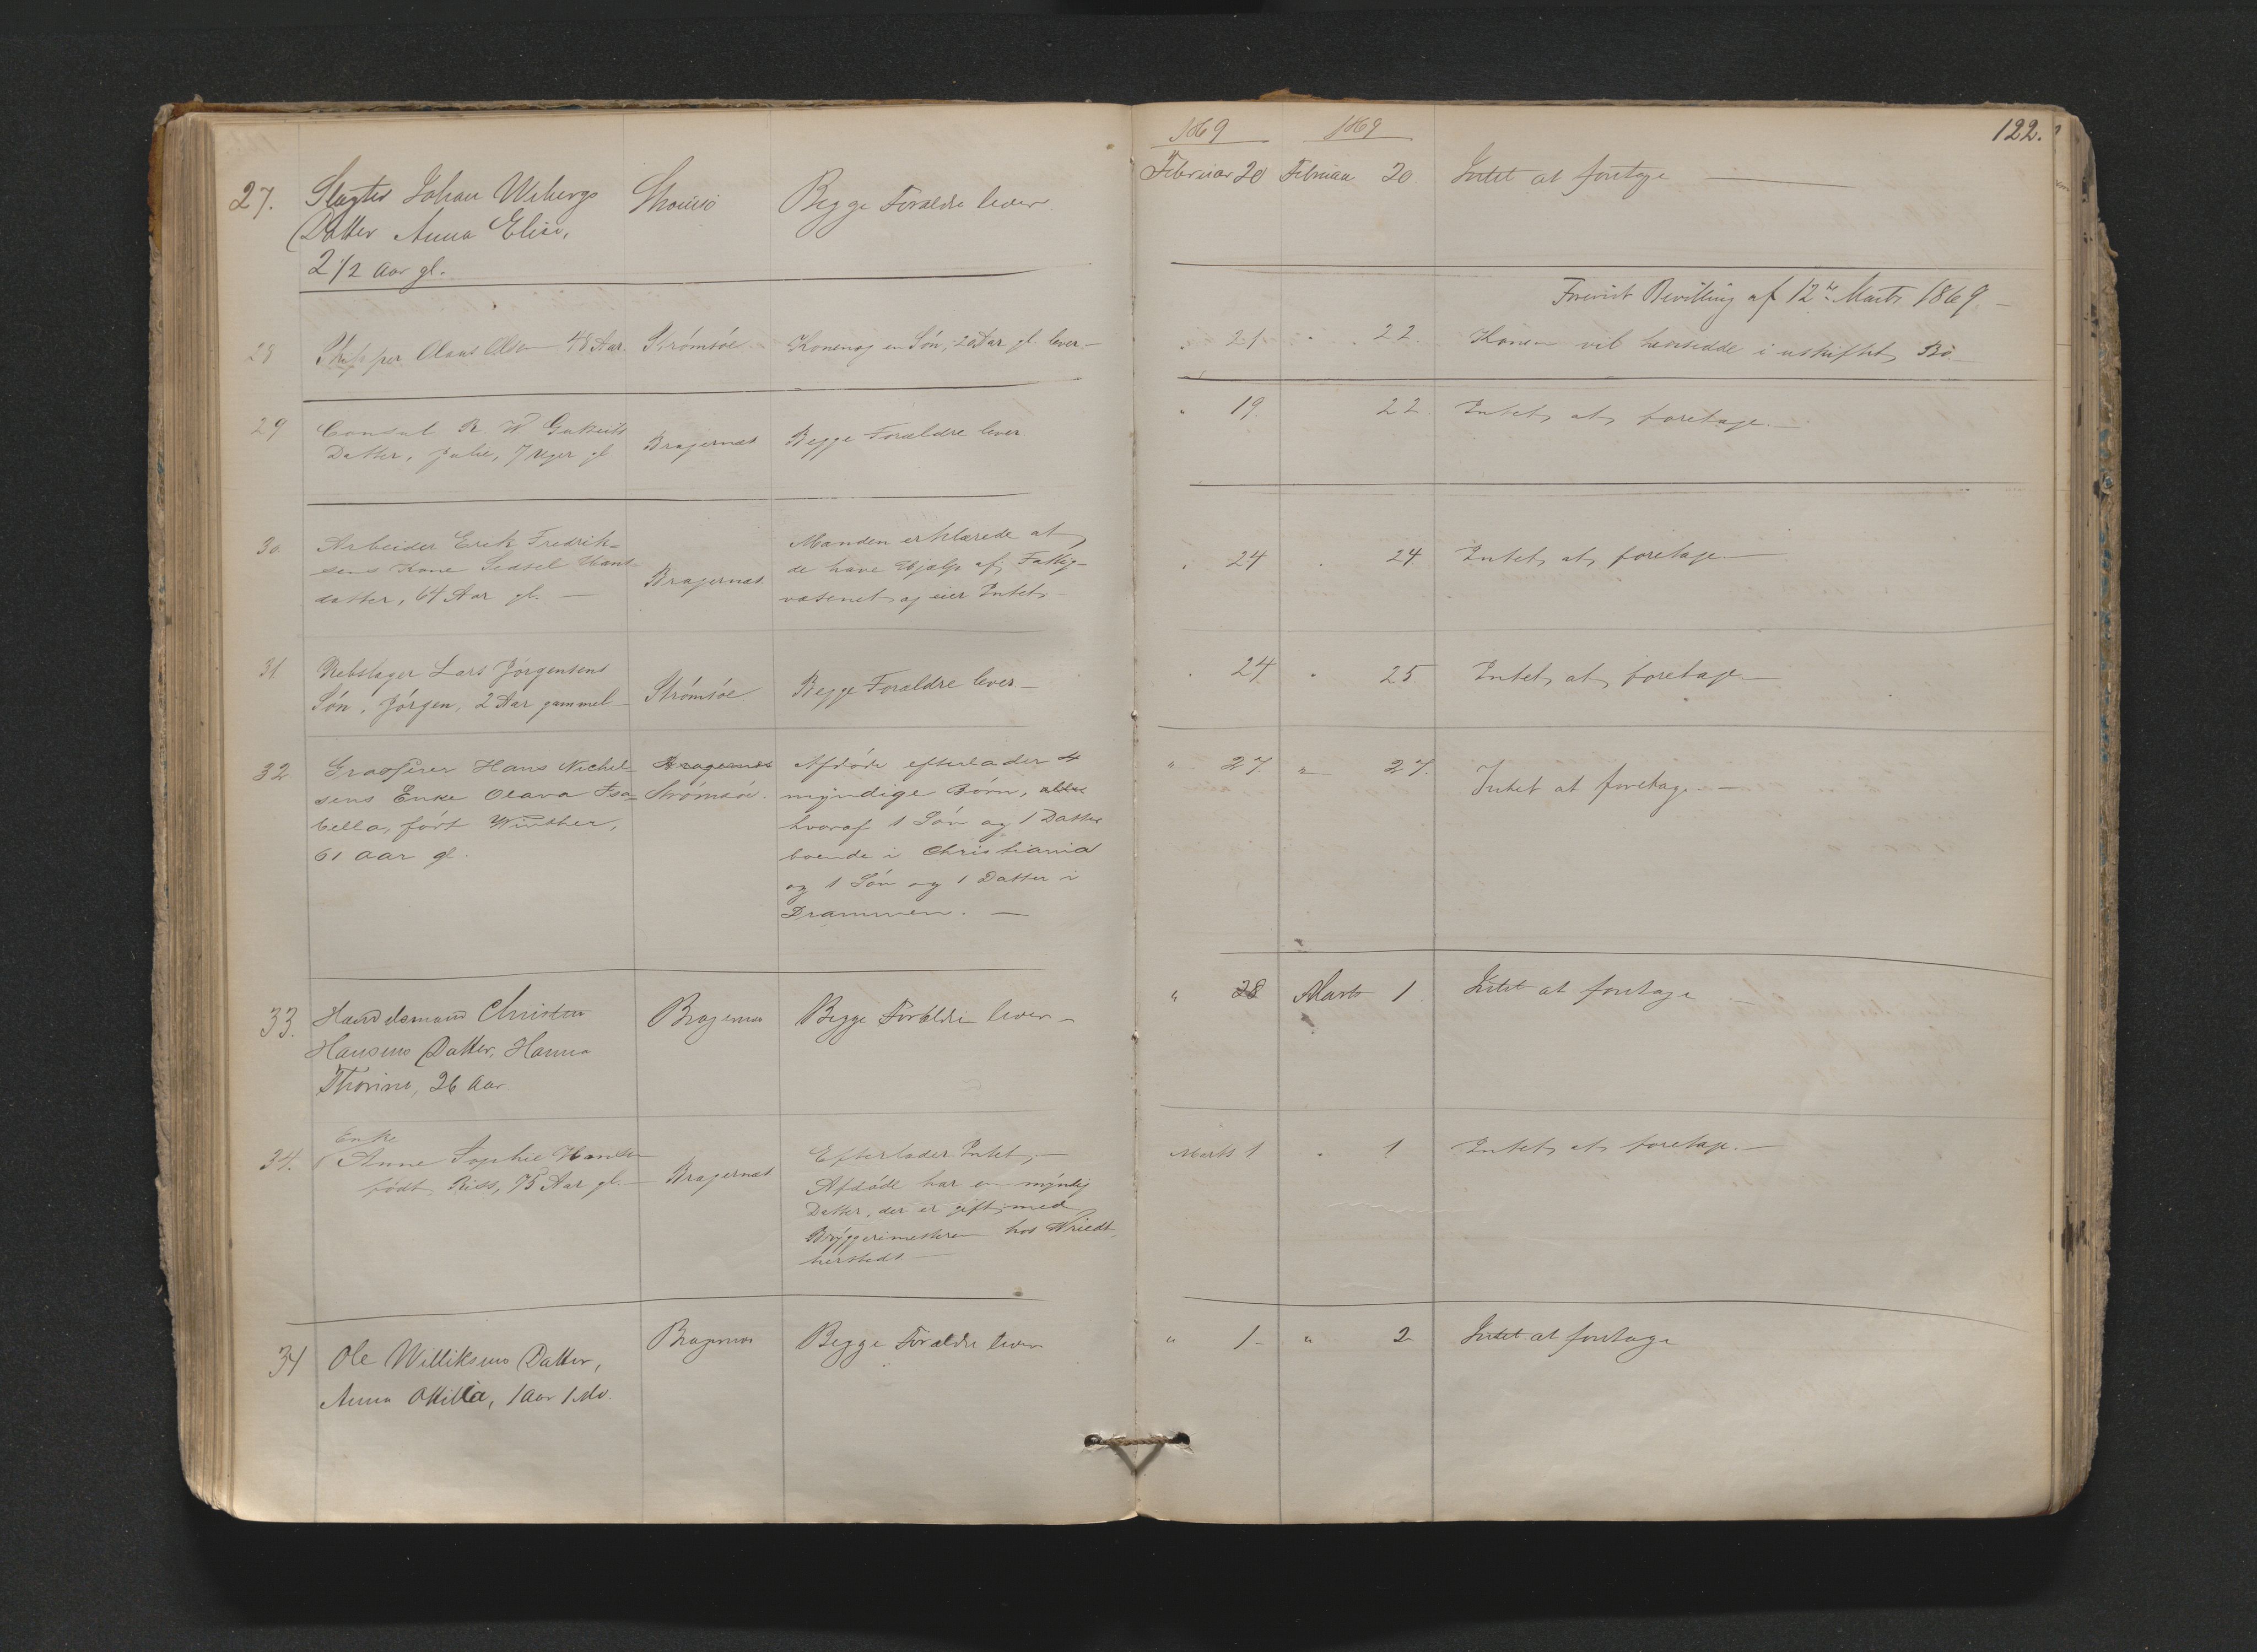 122.
1869 1869
27. Slagter Johan Wibergs Strömsö Begge Forældre lever. Februar 20 Februar 20. Intet at foretage —
Datter Anna Elise,
2 1/2 Aar gl.
Forevist Bevilling af 12te Marts 1869 —
28 Skipper Claus Olsen 48 Aar. Strömsöe Konen og en Sön, 20 Aar gl lever — " 21 " 22. Konen vil hensidde i uskiftet Bo
29 Consul R. W. Datter, Julie, 7 Uger gl Bragernæs Begge Forældre lever. " 19. 22. Intet at foretage. —
30. Arbeider Erik Fredrik-
sens Kone Sedsel Hans-
datter, 64 Aar gl. — Bragernæs
Manden erklærede at
de have Hjælp af Fattig-
væsenet og eier Intet — " 24 " 24 Intet at foretage —
31. Rebslager Lars Jörgensens
Sön, Jörgen, 2 Aar gammel — Strömsöe Begge Forældre lever. — " 24 " 25 Intet at foretage —
32 Grosserer Hans Nichel-
sens Enke Olava Isa-
bella, fört Winther,
61 Aar gl.
Bragernæs
Strömsöe.
Afdöde efterlader 4
myndige Börn, alle
hvoraf 1 Sön og 1 Datter
boende i Christiania
og 1 Sön og 1 Datter i
Drammen. —
" 27. " 27. Intet at foretage. —
33. Handelsmand Christen
Hansens Datter, Hanna
Thorine, 26 Aar
Bragernæs Begge Forældre lever — " 28 Marts 1 Intet at foretage
34. Enke
Anne Sophie Hansen
födt Riis, 75 Aar gl. — Bragernæs
Efterlader Intet, —
Afdöde har en myndig
Datter, der er gift med
Bryggerimesteren hos Wriedt,
hersteds —
Marts 1 " 1 Intet at foretage. —
34 Ole Williksens Datter,
Anna Ottilia, 1 Aar 1 Md.
Bragernæs Begge Forældre lever " 1 — " 2 Intet at foretage